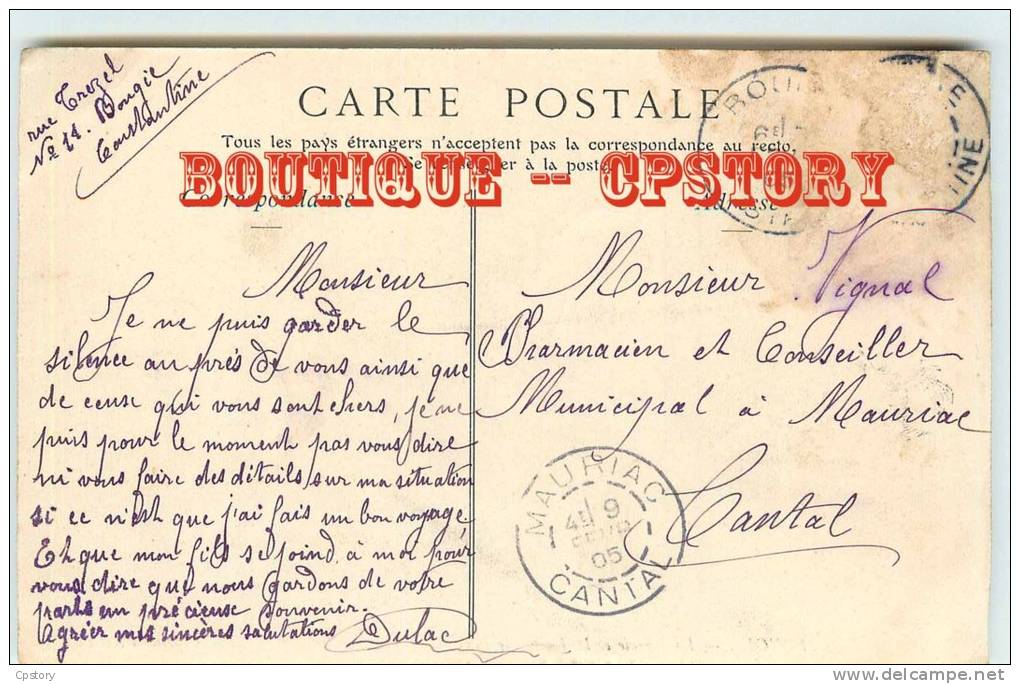 rue Trezel
No 11. Bougie
Constantine
CARTE POSTALE
Tous les pays étrangers n'acceptent pas la correspondance au recto.
Se renseigner à la poste
BOUTIQUE -- CPSTORY
Correspondance
Adresse
Monsieur
Je ne puis garder le
silence au prés de vous ainsi que
de ceuse qui vous sont chers, je ne
puis pour le moment pas vous dire
ni vous faire des détails sur ma situation
si ce n'est que j'ai fais un bon voyage
Et que mon fils se joind à moi pour
vous dire que nous gardons de votre
parts em précieuse souvenir.
Agréer mes sincères salutations
Dulac
Monsieur Vignal
Pharmacien et Conseiller
Municipal à Mauriac
Cantal
MAURIAC
4E 9
05
CANTAL
Cpstory
delcampe.net